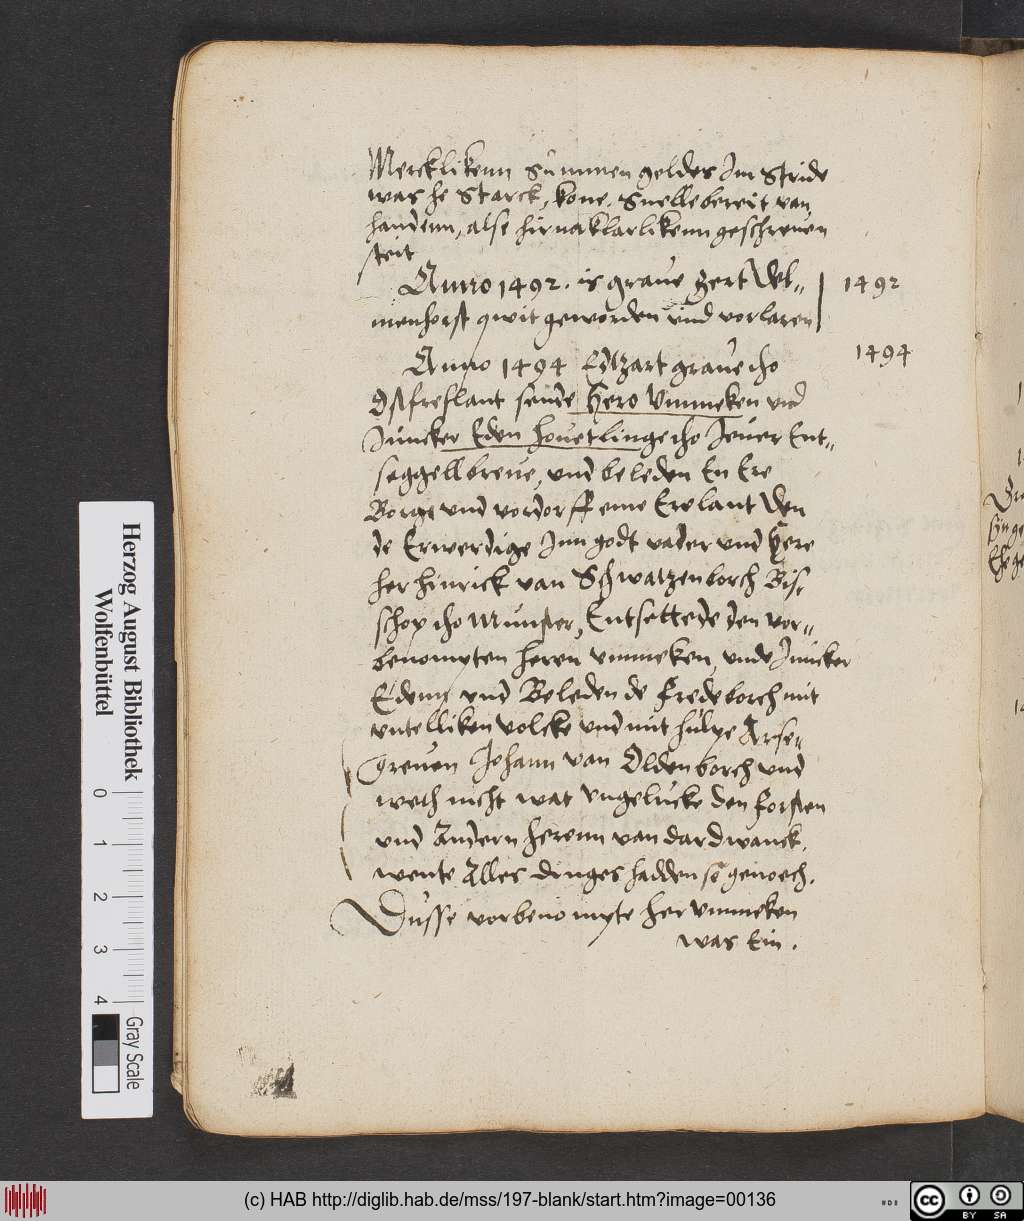 Mercklikenn Summen geldes Im Stride
was he Starck, kone. Snelle bereit van
handenn, alse hirna klarlikenn geschreuen
steit
Anno 1492. is graue gert Del-- 1492
menhorst qwit geworden und vorlaren
Anno 1494 Edtzart graue tho 1494
Ostfreslant sende Hero Ummeken und
Juncker Eden houetlinge tho Jeuer Ent--
seggellbreue, und beleden En Ere
Borge und vordorffeme Ere lant Den
de Erwerdige Jnn godt vader und Here
her hinrick van Schwatzenborch Bis-
schop tho Munster, Entsettede den vor--
benompten heren ummeken, unde Juncker
Edenn und Beleden de fredeborch mit
volcke und mit hulpe
greuen Johann van Oldenborch und
weth nicht wat ungelucke den forsten
und Andern herenn van dar dwanck,
wente Alles dinges hadden se genoech.
Dusse vorbenompte her Ummeken
was Ein.
Herzog August Bibliothek
Wolfenbüttel
0 1 2 3 4
Gray Scale
(c) HAB http://diglib.hab.de/mss/197-blank/start.htm?image=00136
cc BY SA